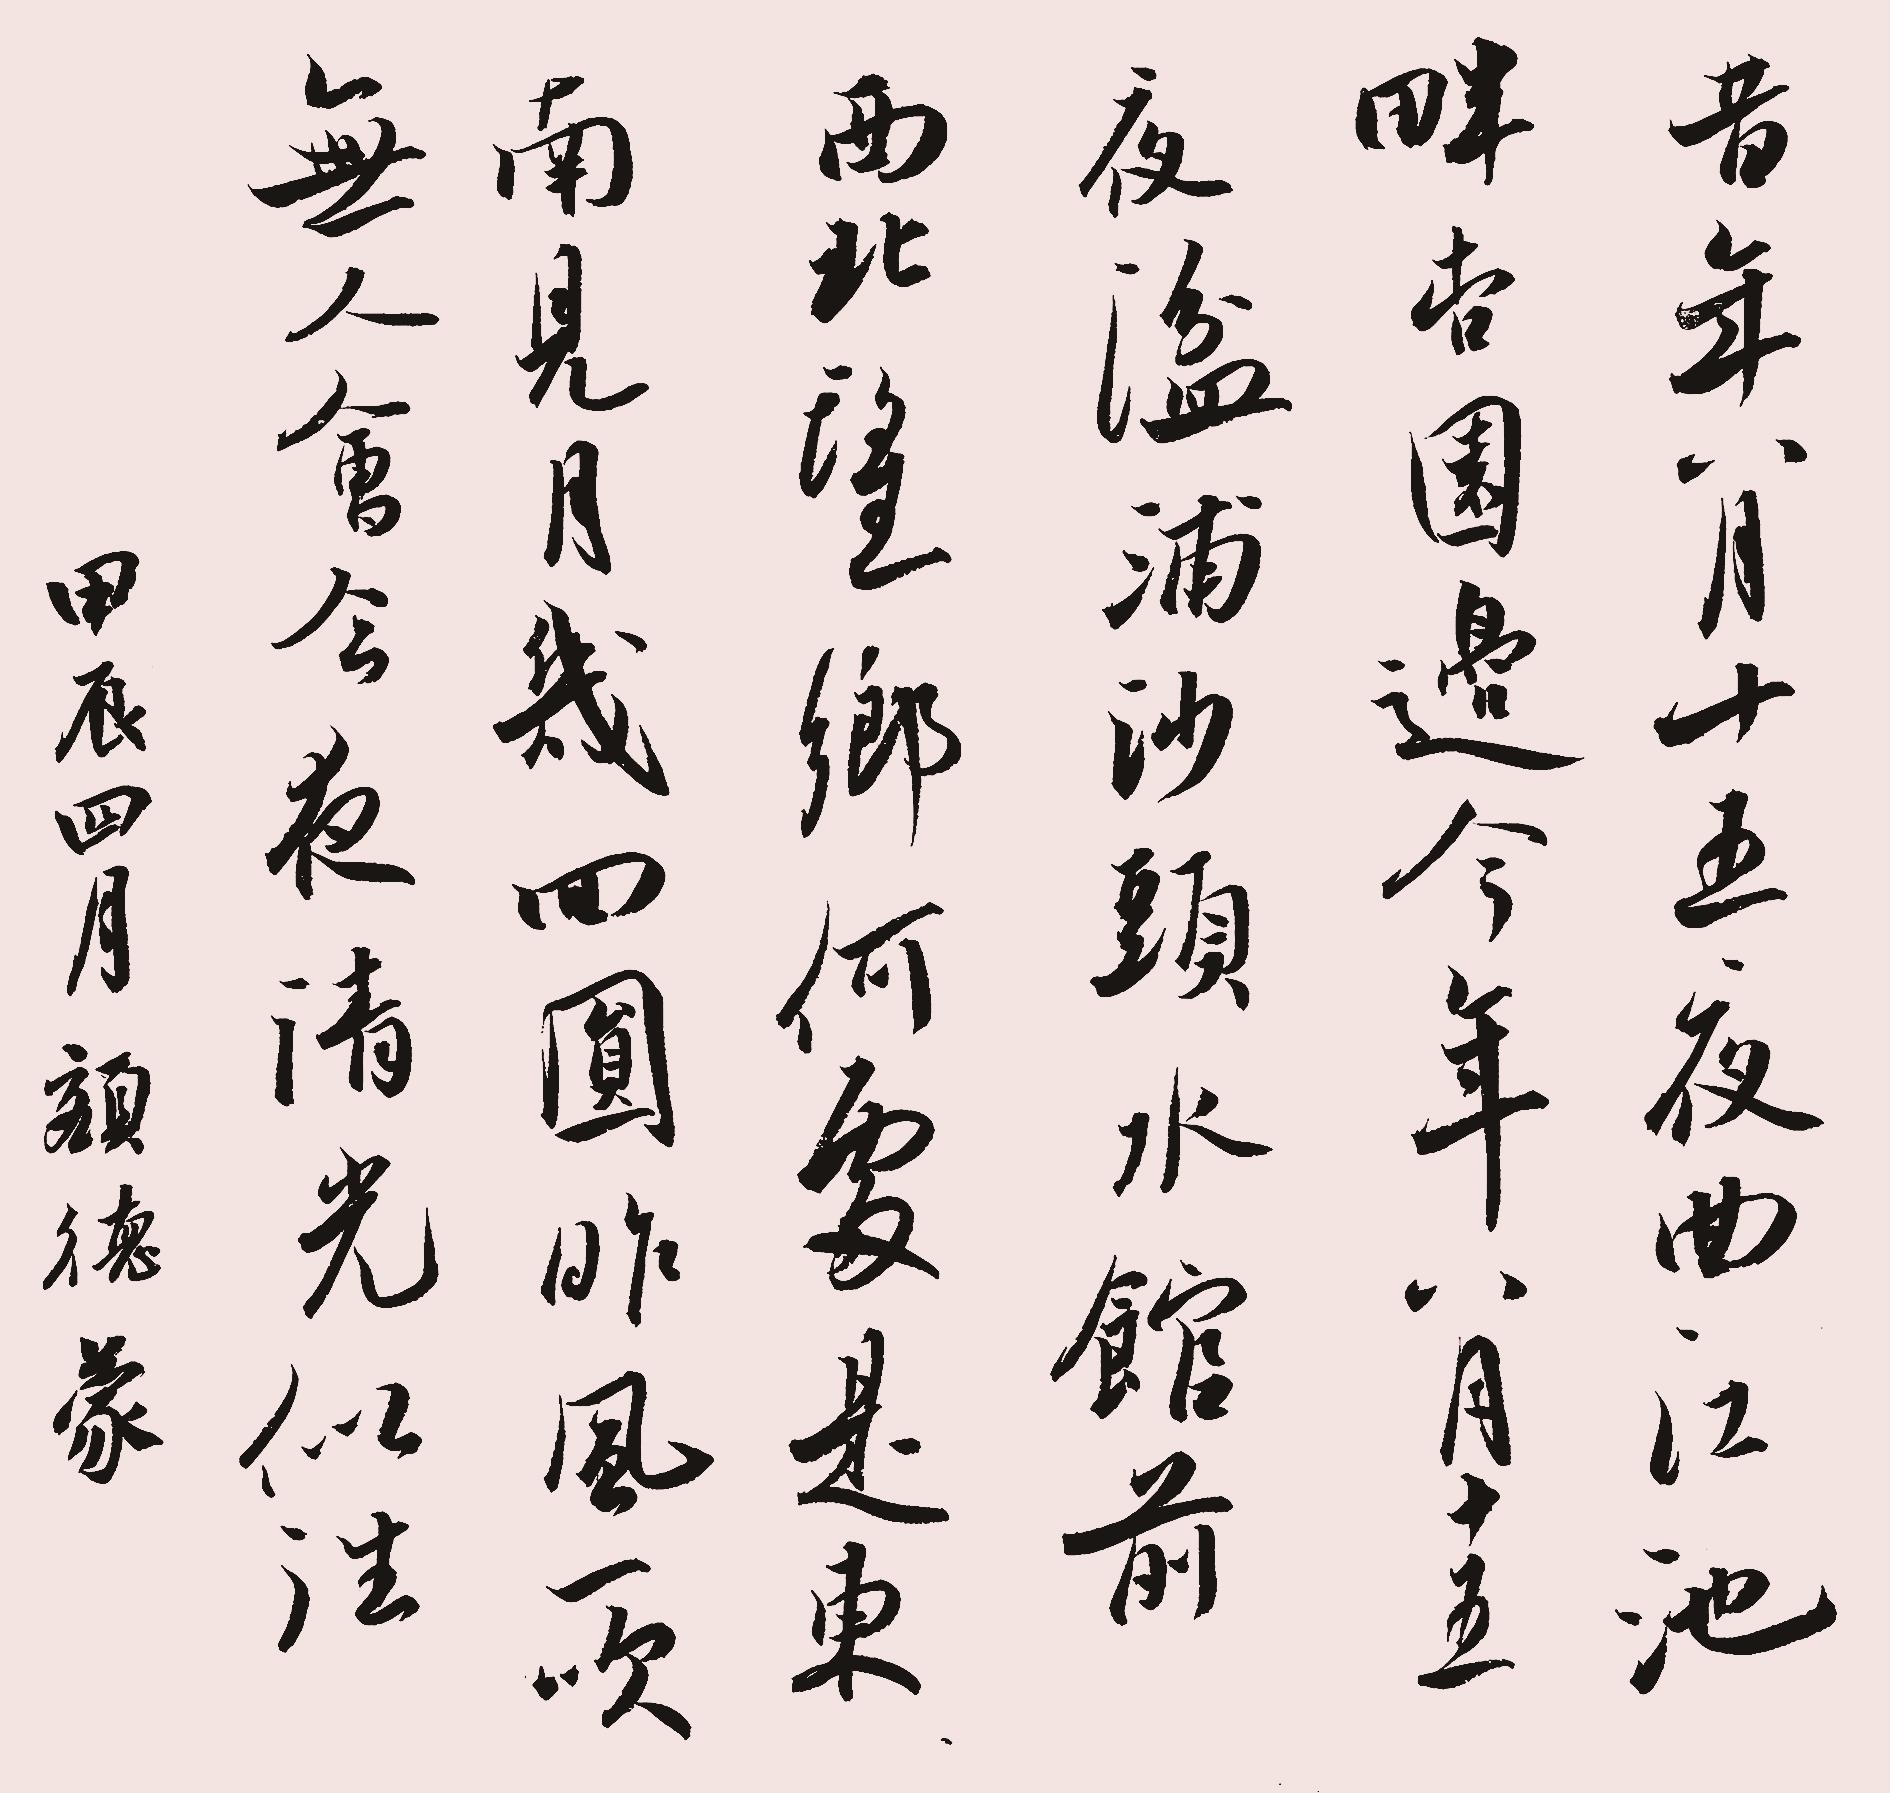 昔年八月十五夜曲江池
畔杏園邊今年八月十五
夜湓浦沙頭水館前
西北望鄉何處是東
南見月幾回圓昨風一吹
無人會今夜清光似往
甲辰四月額德蒙